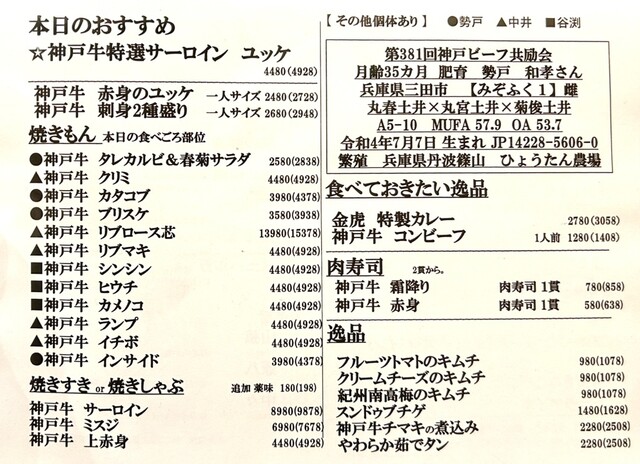 本日のおすすめ
☆神戸牛特選サーロイン ユッケ
4480(4928)
神戸牛 赤身のユッケ 一人サイズ 2480(2728)
神戸牛 刺身2種盛り 一人サイズ 2680(2948)
焼きもん 本日の食べごろ部位
●神戸牛 タレカルビ&春菊サラダ 2580(2838)
▲神戸牛 クリミ 4480(4928)
●神戸牛 カタコブ 3980(4378)
●神戸牛 ブリスケ 3580(3938)
▲神戸牛 リブロース芯 13980(15378)
▲神戸牛 リブマキ 4480(4928)
■神戸牛 シンシン 4480(4928)
■神戸牛 ヒウチ 4480(4928)
■神戸牛 カメノコ 4480(4928)
▲神戸牛 ランプ 4480(4928)
▲神戸牛 イチボ 4480(4928)
●神戸牛 インサイド 3980(4378)
焼きすき or 焼きしゃぶ 追加 薬味 180(198)
神戸牛 サーロイン 8980(9878)
神戸牛 ミスジ 6980(7678)
神戸牛 上赤身 4480(4928)
【 その他個体あり 】 ●勢戸 ▲中井 ■谷渕
第381回神戸ビーフ共励会
月齢35カ月 肥育 勢戸 和孝さん
兵庫県三田市 【みぞふく1】雌
丸春土井×丸宮土井×菊俊土井
A5-10 MUFA 57.9 OA 53.7
令和4年7月7日 生まれ JP14228-5606-0
繁殖 兵庫県丹波篠山 ひょうたん農場
食べておきたい逸品
金虎 特製カレー 2780(3058)
神戸牛 コンビーフ 1人前 1280(1408)
肉寿司 2貫から。
神戸牛 霜降り 肉寿司 1貫 780(858)
神戸牛 赤身 肉寿司 1貫 580(638)
逸品
フルーツトマトのキムチ 980(1078)
クリームチーズのキムチ 980(1078)
紀州南高梅のキムチ 980(1078)
スンドゥブチゲ 1480(1628)
神戸牛チマキの煮込み 2280(2508)
やわらか茹でタン 2280(2508)